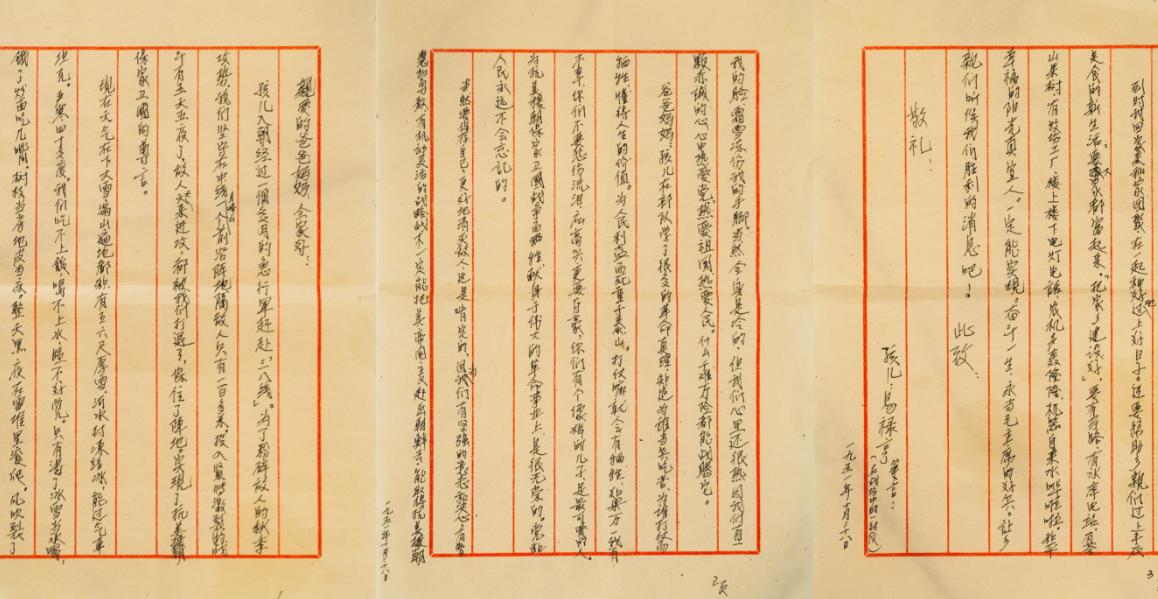 亲爱的爸爸妈妈、全家好！
孩儿入朝经过一个多月的急行军赶赴“三八线”。为了粉碎敌人的秋季
攻势，我们坚守在中线
斗有五天五夜了，敌人天天来进攻都被我们打退了，保住了阵地。实现了抗美援朝
保家卫国的尊言。
现在天气在下大雪满山遍地都积有五六尺厚雪，河水封冻结冰，能过汽车
坦克。严寒四十多度。我们吃不上饭，喝不上水，睡不好觉。只有渴了冰雪当水喝，
饿了炒面吃几嘴，树枝当房地皮当床。整天黑夜在雪堆里滚爬，风吹裂了
我的脸，霜雪冻伤我的手脚，当然全身是冷的，但我们心里还很热，因我们有一
颗赤诚的心，心中热爱党，热爱祖国，热爱人民。什么千难万险都能战胜它。
爸爸妈妈：孩儿在部队学了很多的革命真理，知道为谁当兵吃苦，为谁打仗而
牺牲，懂得人生的价值。为人民利益而死重于泰山。打仗嘛就会有牺牲，如果万一我有
不幸，你们不要悲伤流泪，应高兴更要自豪，你们有个像样的儿子，是最可爱的人。
为抗美援朝保家卫国战争而牺牲，献身于伟大的革命事业上，是很光荣的，党和
人民永远不会忘记的。
当然要保存自己，更好地消灭敌人，这是肯定的，因为我们有坚强的意志和决心，有智
慧和勇敢，有机动灵活的战略战术一定能把美帝国主义赶出朝鲜去，能取得抗美援朝
一九五一年十月二十八日
2页
到时我回家
在一起种好地过上好日子。还要帮助乡亲们过上丰衣
美食的新生活，要大家都富起来。“把家乡建设好”，要有公路，有水库电站，
山果树，有牧场工厂，楼上楼下电灯电话，机声轰隆隆，自来水哗啦啦。和平
幸福的阳光真宜人。一定能实现。奋斗一生，永当毛主席的好兵。让乡
亲们听候我们胜利的消息吧！
此致
敬礼！
孩儿：马禄亭 笔言：
（在战场中的一封信）
一九五一年十月二十八日
3